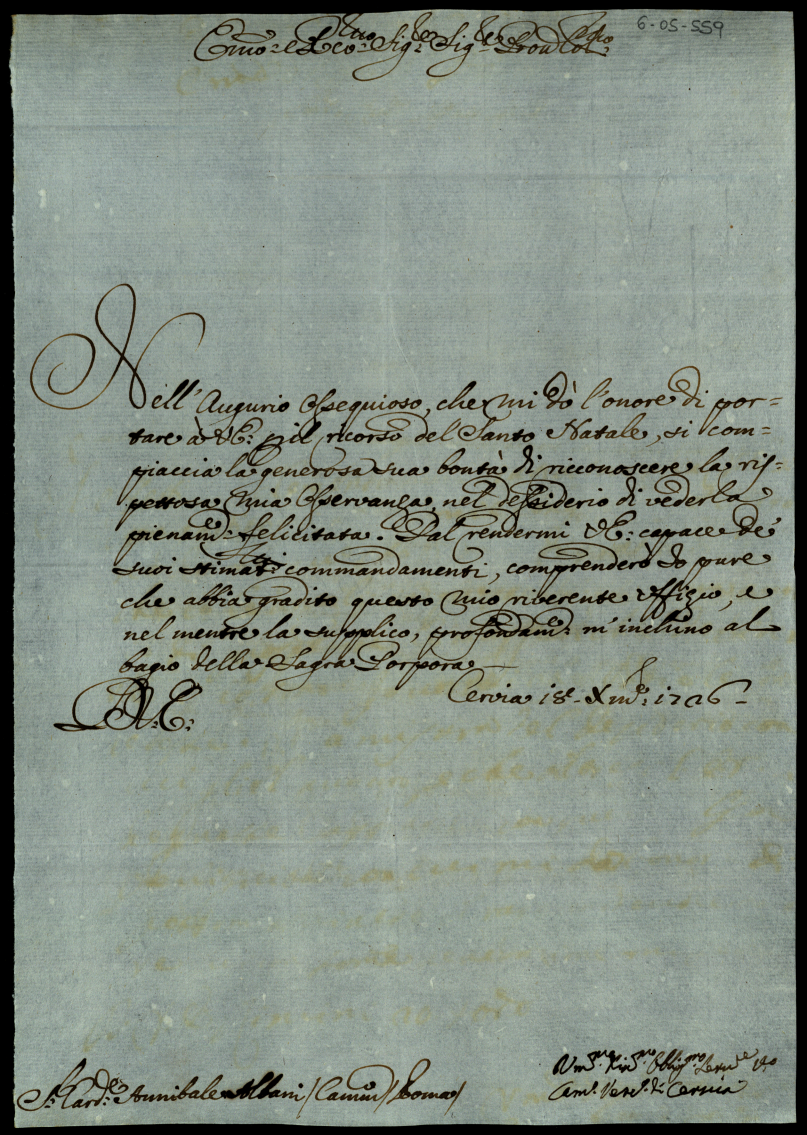 6-05-559
Emo: e Rmo: Sig:re Sig:re Pron Col:mo
Nell'Augurio Ossequioso, che mi dò l'onore di por=
tare à V.E: p il ricorso del Santo Natale, si com=
piaccia la generosa sua bontà di riconoscere la ris=
pettosa mia Osservanza, nel dessiderio di vederla
pienam:te felicitata. Dal rendermi V.E: capace de'
suoi stimati:mi commandamenti, comprenderò Io pure
che abbia gradito questo mio riverente Offizio, e
nel mentre la supplico, profondam:te m'inchino al
bagio della Sagra Porpora
Cervia 18 Xmbre: 1726
D.V.E:
S:r Card:le Annibale Albani / Camer: / Roma /
Vm:mo Obblig:mo Serv:re
Vesc:o di Cervia